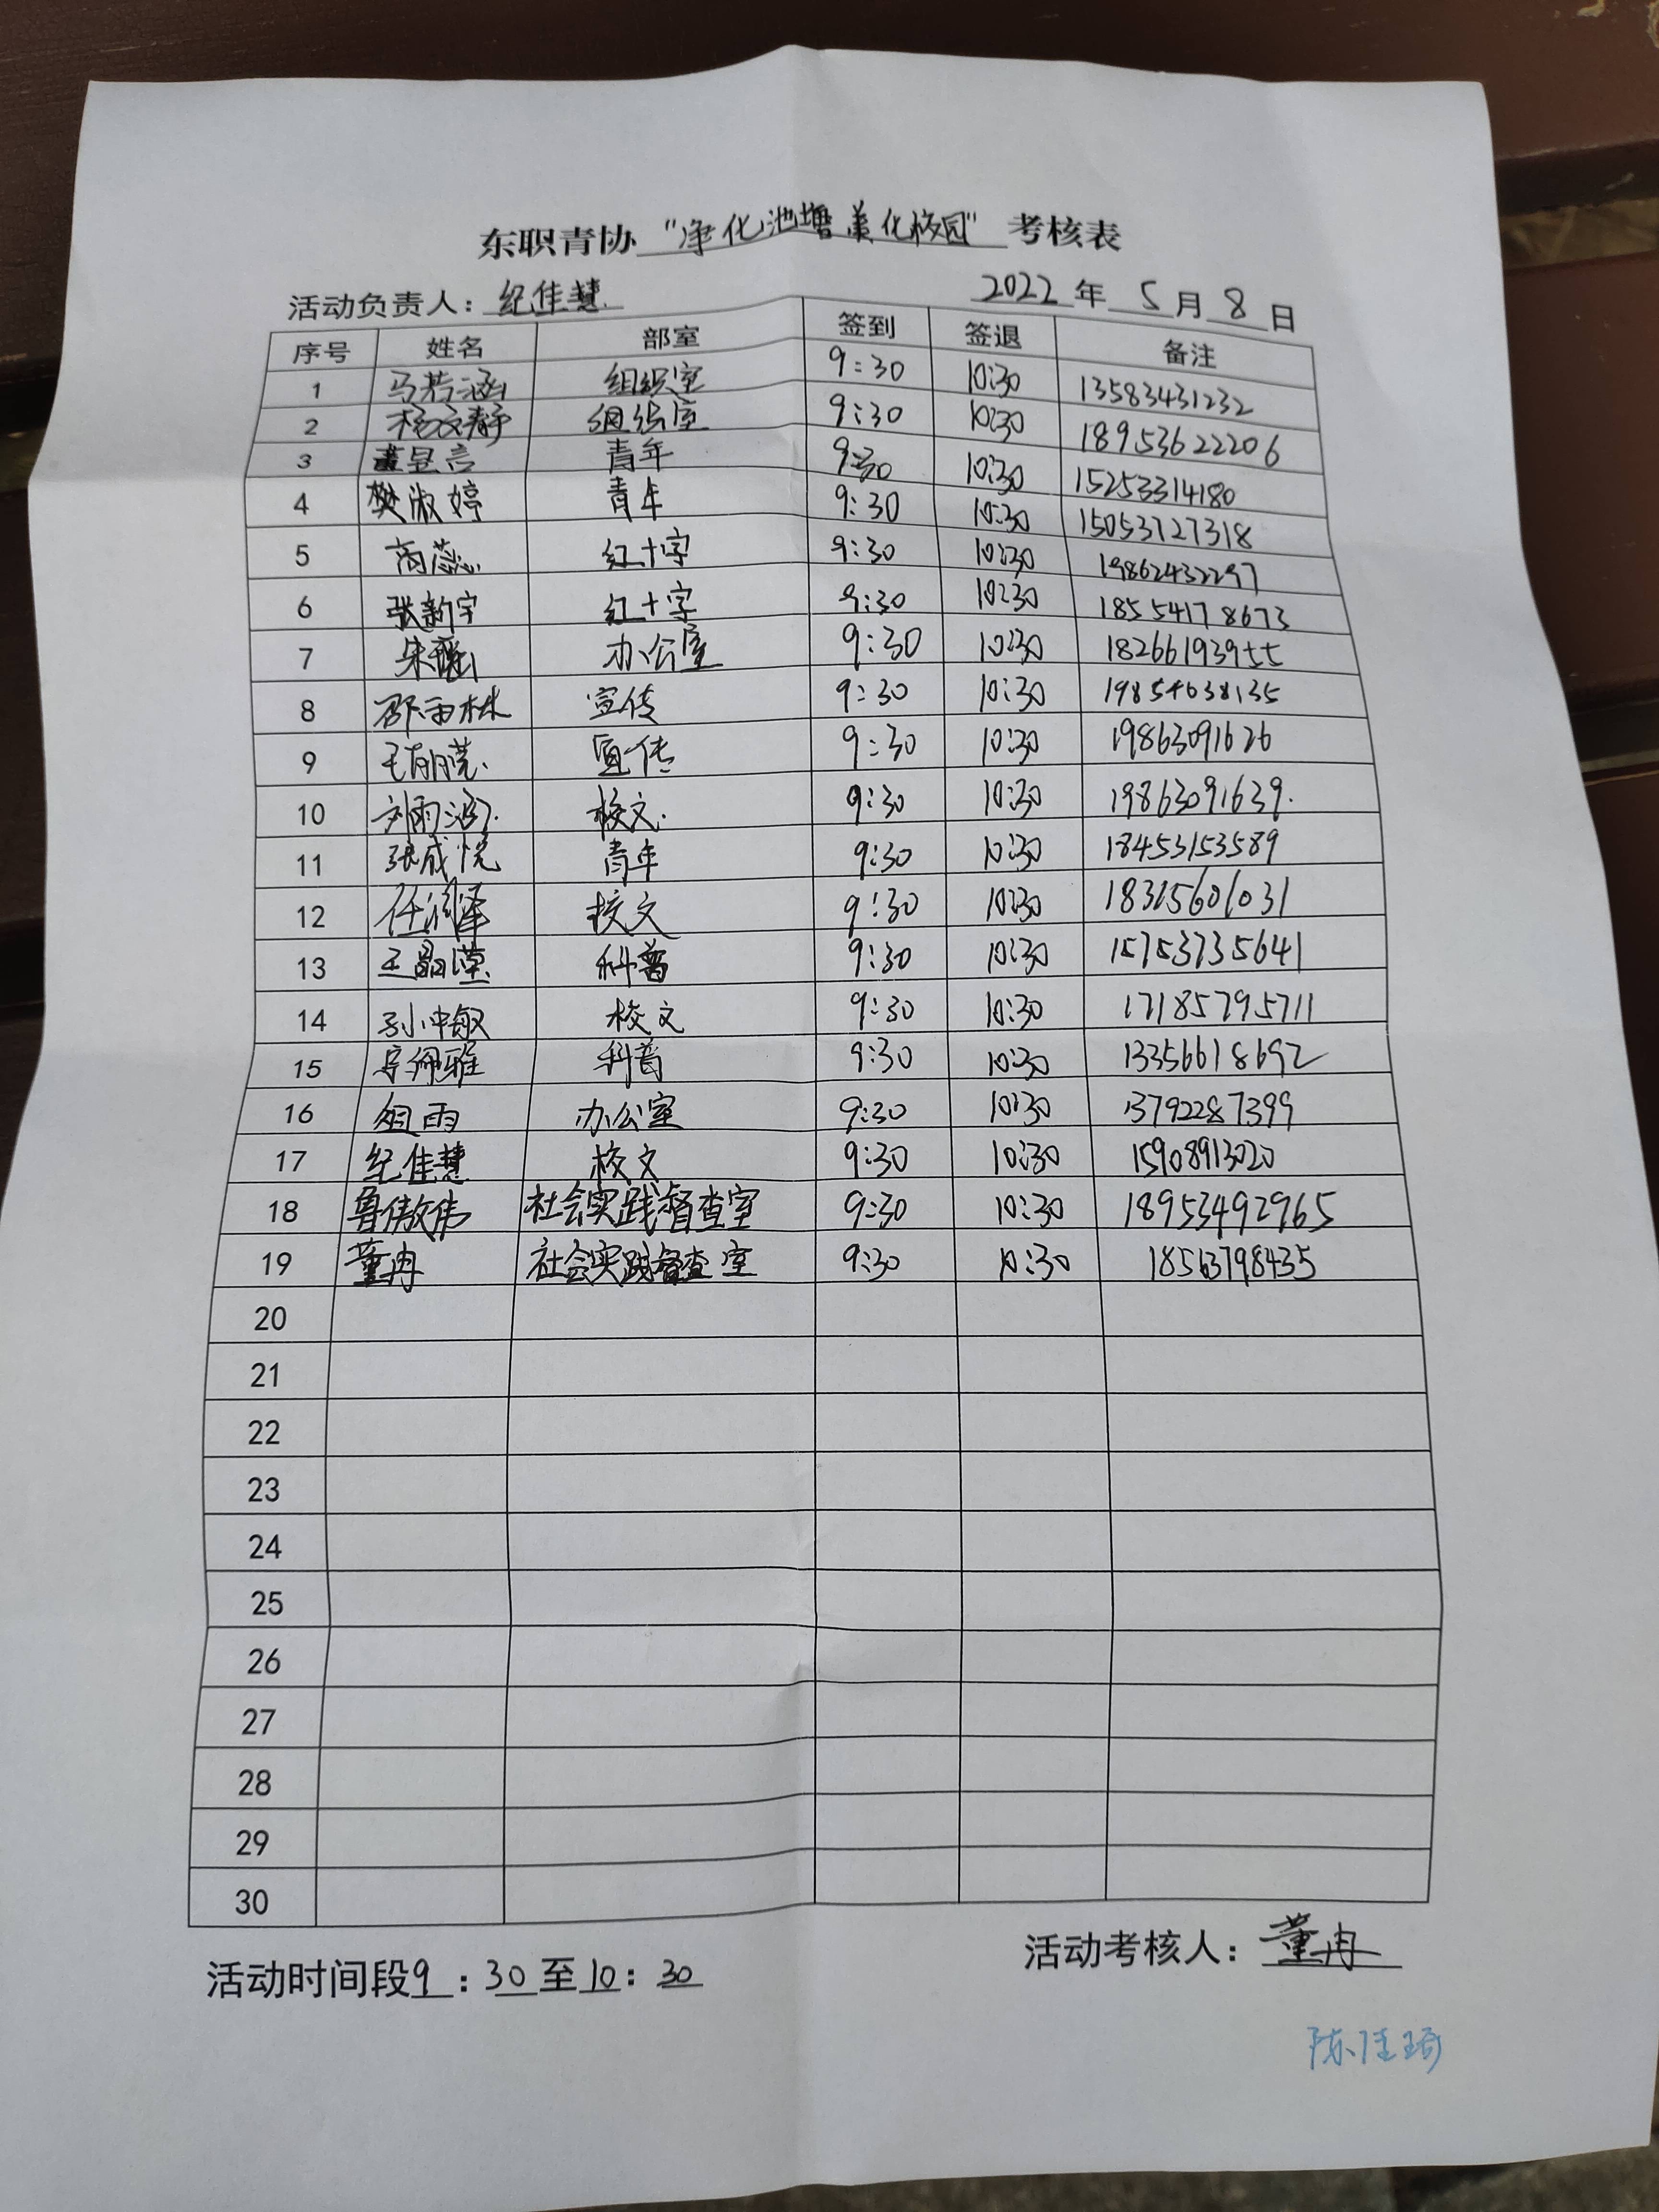 东职青协 "净化池塘 美化校园" 考核表
活动负责人: 纪佳慧 2022 年 5 月 8 日
序号 姓名 部室 签到 签退 备注
1 马若涵 组织室 9:30 10:30 13583431232
2 杨文静 组织室 9:30 10:30 18953622206
3 董昱言 青年 9:30 10:30 15253314180
4 樊淑婷 青年 9:30 10:30 15053727318
5 商蕊 红十字 9:30 10:30 19862432297
6 张新宇 红十字 9:30 10:30 18554178673
7 朱 办公室 9:30 10:30 18266193955
8 邵雨林 宣传 9:30 10:30 19854638135
9 宣传 9:30 10:30 19863091626
10 刘雨涵 校文 9:30 10:30 19863091639
11 张成悦 青年 9:30 10:30 18453153589
12 任润泽 校文 9:30 10:30 18315601031
13 王晶滢 科普 9:30 10:30 15753735641
14 孙中敏 校文 9:30 10:30 17185795711
15 科普 9:30 10:30 13356618692
16 雨 办公室 9:30 10:30 13792287399
17 纪佳慧 校文 9:30 10:30 15908913020
18 鲁傲伟 社会实践督查室 9:30 10:30 18953492965
19 董冉 社会实践督查室 9:30 10:30 18563798435
20
21
22
23
24
25
26
27
28
29
30
活动时间段9:30至10:30 活动考核人: 董冉
陈佳琦